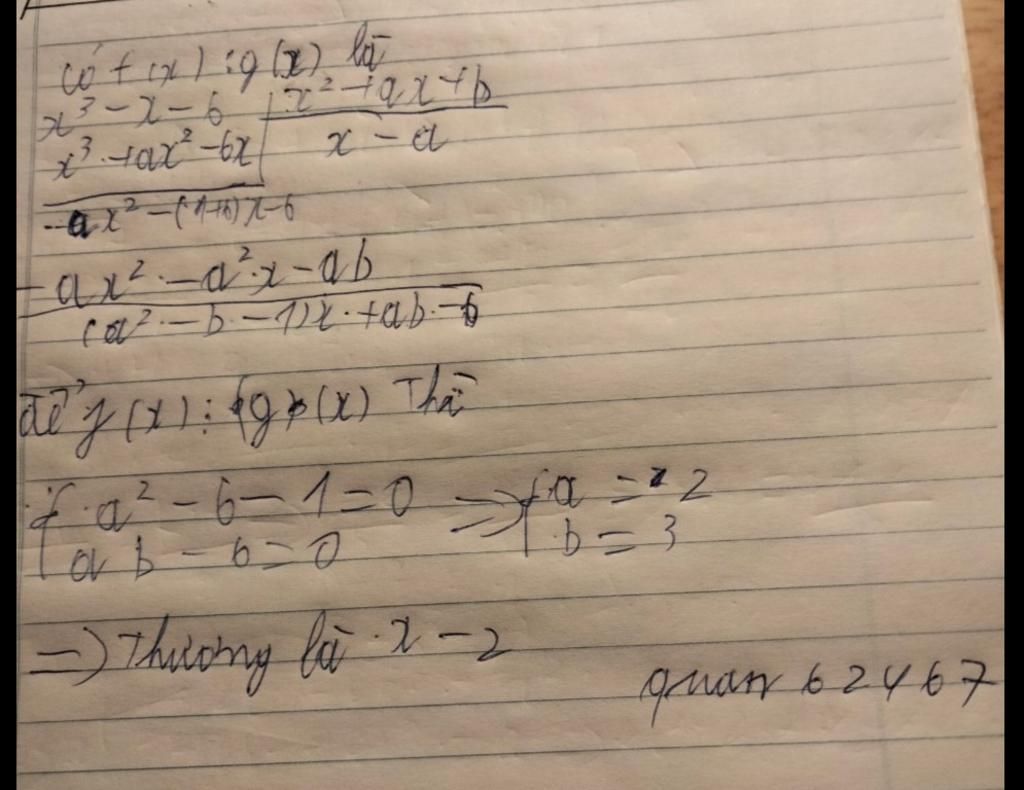 có f(x) : g(x) là
x³ - x - 6 | x² + ax + b
x³ + ax² - 6x | x - a
-ax² - (1+b)x - 6
-ax² - a².x - ab
(a² - b - 1)x + ab - 6
để f(x) : g(x) Thì
{ a² - b - 1 = 0 => { a = 2
ab - 6 = 0 b = 3
=> Thương là x - 2
quan 62467